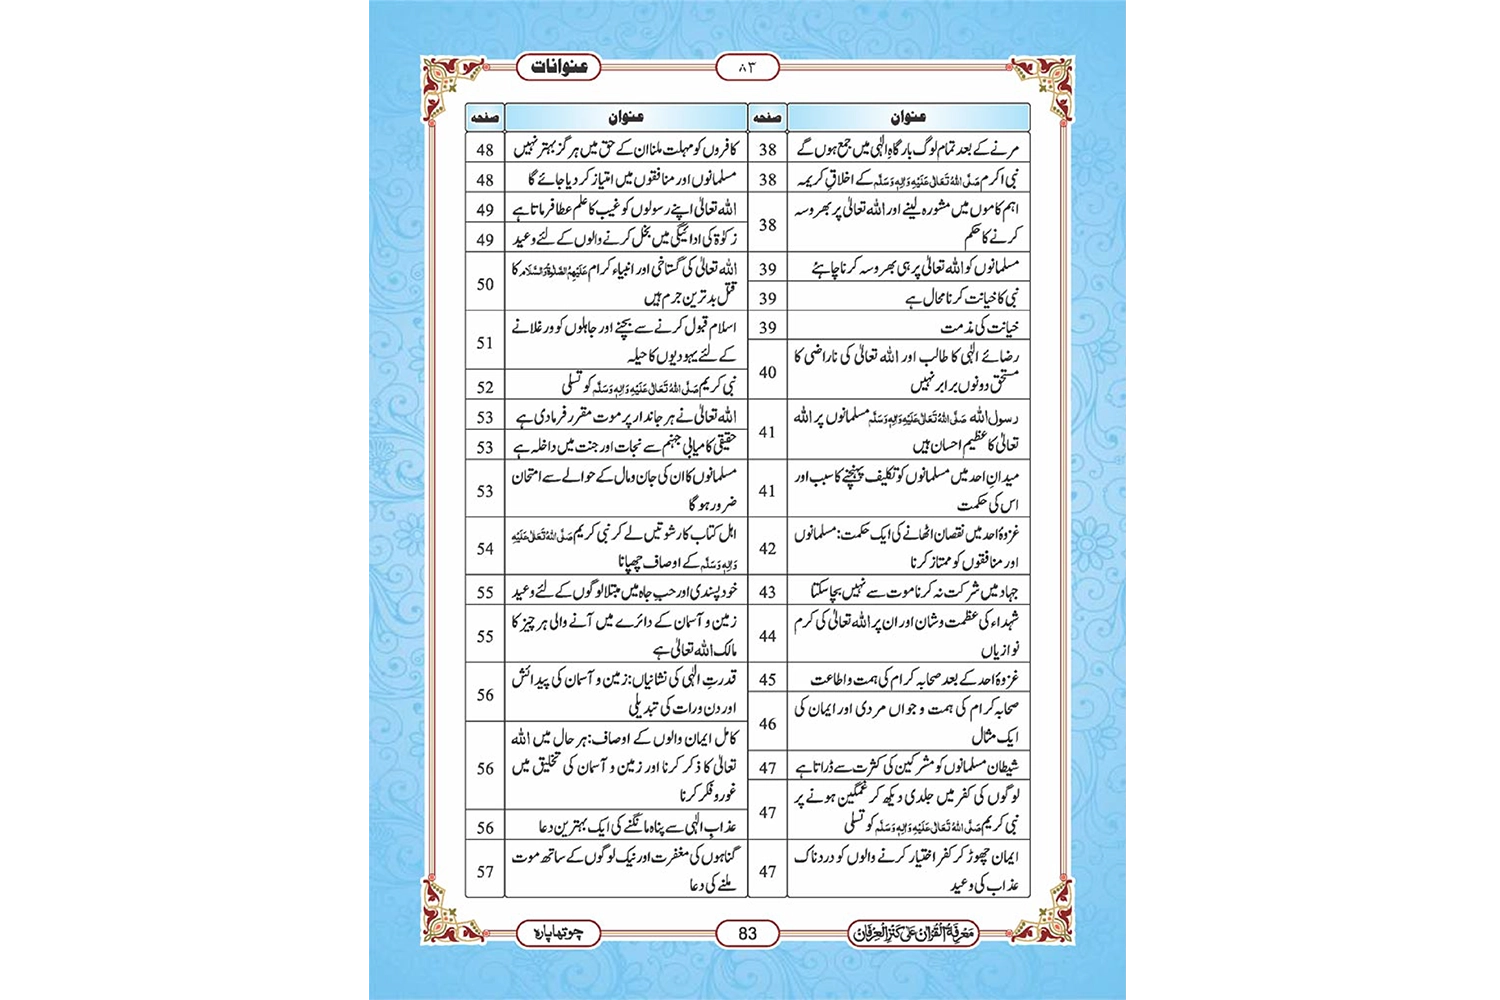 عنوانات
۸۳
عنوان
صفحہ
مرنے کے بعد تمام لوگ بارگاہِ الٰہی میں جمع ہوں گے
38
نبی اکرم صَلَّی اللہُ تَعَالٰی عَلَیْہِ وَاٰلِہٖ وَسَلَّم کے اخلاقِ کریمہ
38
اہم کاموں میں مشورہ لینے اور اللہ تعالیٰ پر بھروسہ
کرنے کا حکم
38
مسلمانوں کو اللہ تعالیٰ پر ہی بھروسہ کرنا چاہئے
39
نبی کا خیانت کرنا محال ہے
39
خیانت کی مذمت
39
رضائے الٰہی کا طالب اور اللہ تعالیٰ کی ناراضی کا
مستحق دونوں برابر نہیں
40
رسول اللہ صَلَّی اللہُ تَعَالٰی عَلَیْہِ وَاٰلِہٖ وَسَلَّم مسلمانوں پر اللہ
تعالیٰ کا عظیم احسان ہیں
41
میدانِ احد میں مسلمانوں کو تکلیف پہنچنے کا سبب اور
اس کی حکمت
41
غزوۂ احد میں نقصان اٹھانے کی ایک حکمت: مسلمانوں
اور منافقوں کو ممتاز کرنا
42
جہاد میں شرکت نہ کرنا موت سے نہیں بچا سکتا
43
شہداء کی عظمت و شان اور ان پر اللہ تعالیٰ کی کرم
نوازیاں
44
غزوۂ احد کے بعد صحابہ کرام کی ہمت و اطاعت
45
صحابہ کرام کی ہمت و جواں مردی اور ایمان کی
ایک مثال
46
شیطان مسلمانوں کو مشرکین کی کثرت سے ڈراتا ہے
47
لوگوں کی کفر میں جلدی دیکھ کر غمگین ہونے پر
نبی کریم صَلَّی اللہُ تَعَالٰی عَلَیْہِ وَاٰلِہٖ وَسَلَّم کو تسلی
47
ایمان چھوڑ کر کفر اختیار کرنے والوں کو دردناک
عذاب کی وعید
47
عنوان
صفحہ
کافروں کو مہلت ملنا ان کے حق میں ہرگز بہتر نہیں
48
مسلمانوں اور منافقوں میں امتیاز کر دیا جائے گا
48
اللہ تعالیٰ اپنے رسولوں کو غیب کا علم عطا فرماتا ہے
49
زکوٰۃ کی ادائیگی میں بخل کرنے والوں کے لئے وعید
49
اللہ تعالیٰ کی گستاخی اور انبیاء کرام عَلَیْہِمُ الصَّلٰوۃُ وَالسَّلَام کا
قتل بدترین جرم ہیں
50
اسلام قبول کرنے سے بچنے اور جاہلوں کو ورغلانے
کے لئے یہودیوں کا حیلہ
51
نبی کریم صَلَّی اللہُ تَعَالٰی عَلَیْہِ وَاٰلِہٖ وَسَلَّم کو تسلی
52
اللہ تعالیٰ نے ہر جاندار پر موت مقرر فرما دی ہے
53
حقیقی کامیابی جہنم سے نجات اور جنت میں داخلہ ہے
53
مسلمانوں کا ان کی جان و مال کے حوالے سے امتحان
ضرور ہو گا
53
اہل کتاب کا رشوتیں لے کر نبی کریم صَلَّی اللہُ تَعَالٰی عَلَیْہِ
وَاٰلِہٖ وَسَلَّم کے اوصاف چھپانا
54
خود پسندی اور حبِ جاہ میں مبتلا لوگوں کے لئے وعید
55
زمین و آسمان کے دائرے میں آنے والی ہر چیز کا
مالک اللہ تعالیٰ ہے
55
قدرتِ الٰہی کی نشانیاں: زمین و آسمان کی پیدائش
اور دن و رات کی تبدیلی
56
کامل ایمان والوں کے اوصاف: ہر حال میں اللہ
تعالیٰ کا ذکر کرنا اور زمین و آسمان کی تخلیق میں
غور و فکر کرنا
56
عذابِ الٰہی سے پناہ مانگنے کی ایک بہترین دعا
56
گناہوں کی مغفرت اور نیک لوگوں کے ساتھ موت
ملنے کی دعا
57
مَعْرِفَۃُ الْقُرْاٰن عَلٰی کَنْزِ الْعِرْفَان
83
چوتھا پارہ